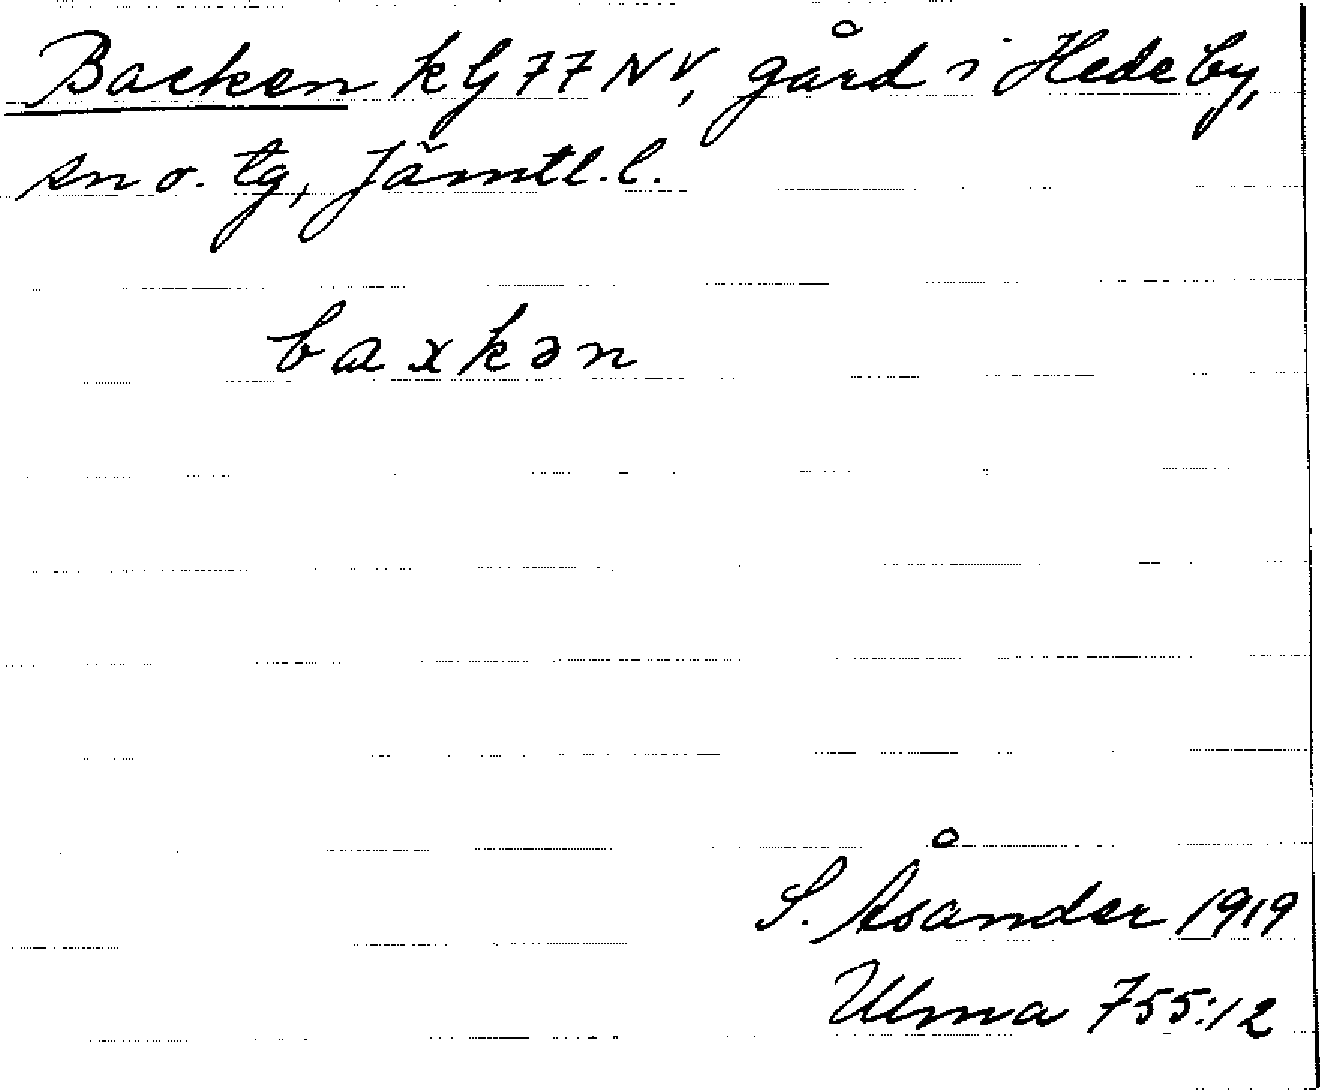 Backen kG 77 NV, gård i Hede by,
sn o. tg, Jämtl.l.
baxkən
S. Åsander 1919
Ulma 755:12